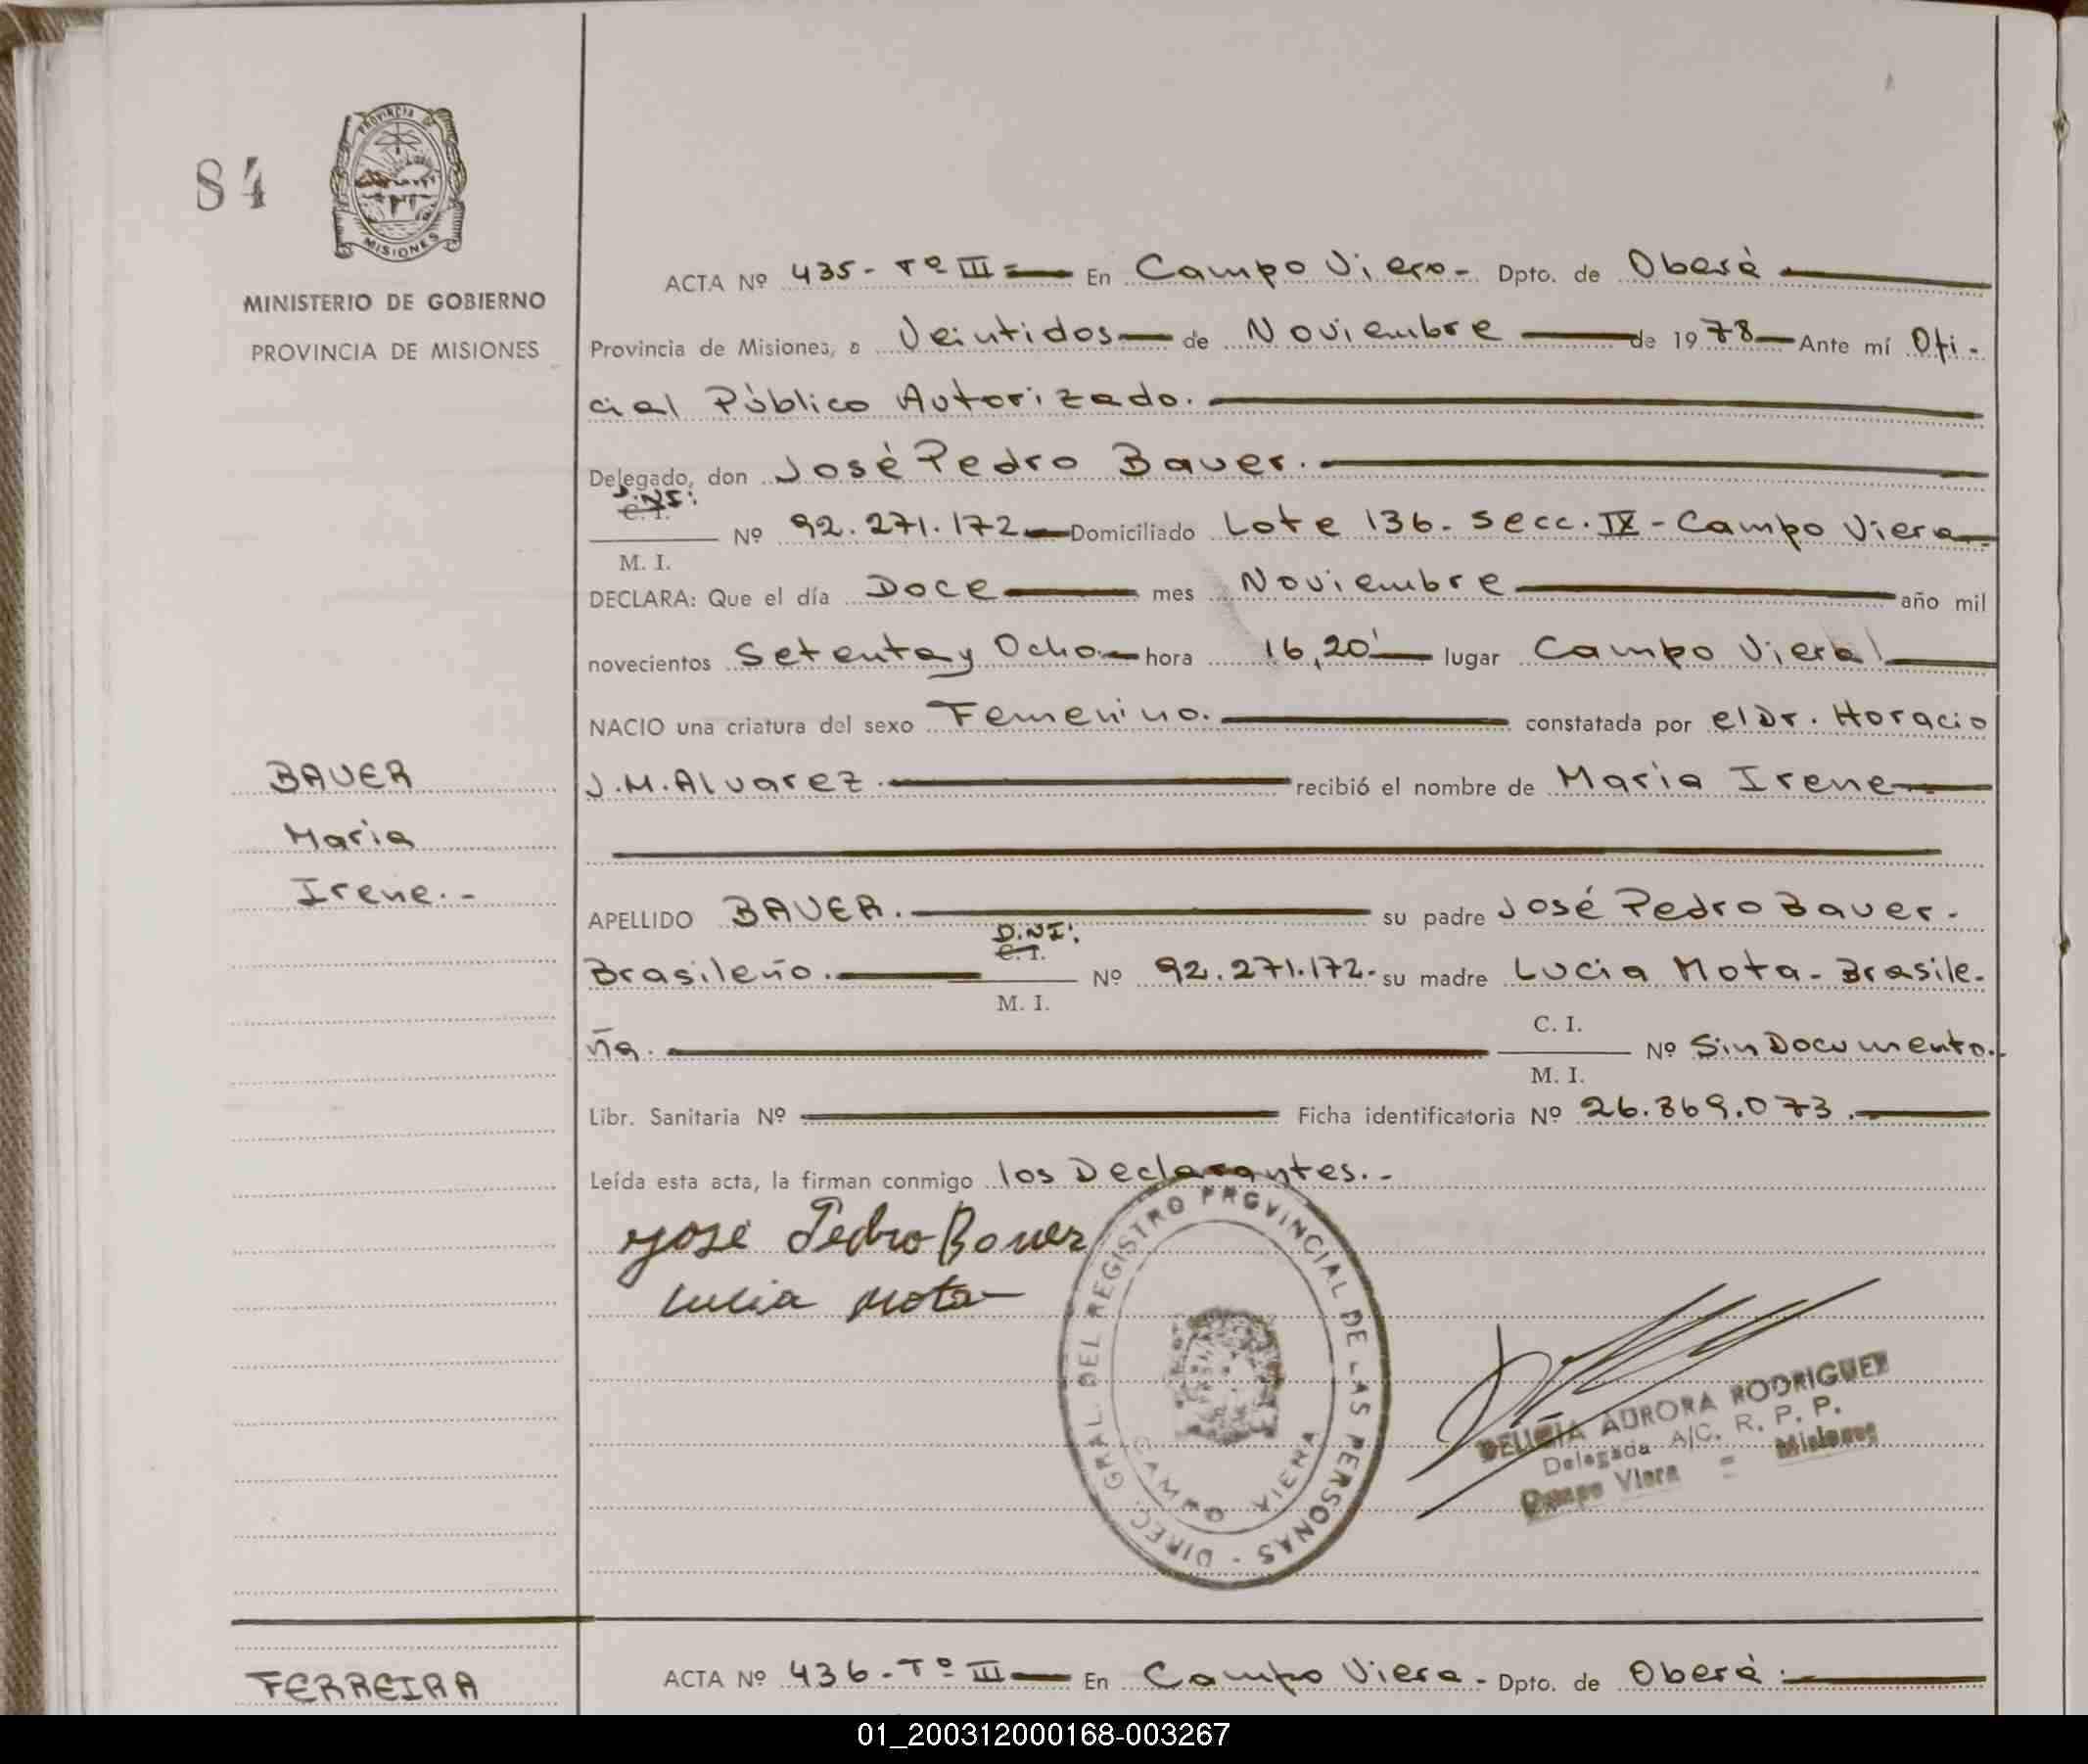 84
PROVINCIA DE
MISIONES
MINISTERIO DE GOBIERNO
PROVINCIA DE MISIONES
ACTA Nº 435- Tº III = En Campo Viera- Dpto. de Oberá
Provincia de Misiones, a Veintidos de Noviembre de 1978 Ante mí Ofi-
cial Público Autorizado.
Delegado, don José Pedro Bauer.
D.N.I:
C. I.
Nº 92.271.172 Domiciliado Lote 136- Secc. IX - Campo Viera
M. I.
DECLARA: Que el día Doce mes Noviembre año mil
novecientos Setenta y Ocho hora 16,20' lugar Campo Viera
NACIO una criatura del sexo Femenino. constatada por el Dr. Horacio
BAUER J.M. Alvarez. recibió el nombre de Maria Irene
Maria
Irene.-
APELLIDO BAUER. su padre José Pedro Bauer-
D.N.I:
C. I.
Brasileño. Nº 92.271.172- su madre Lucia Mota- Brasile-
M. I.
C. I.
ña. Nº Sin Documento.
M. I.
Libr. Sanitaria Nº Ficha identificatoria Nº 26.869.073.
Leída esta acta, la firman conmigo los Declarantes.-
José Pedro Bauer
Lucia Mota
DIREC. GRAL. DEL REGISTRO PROVINCIAL DE LAS PERSONAS -
CAMPO VIERA
AURORA RODRIGUEZ
Delegada A/C. R. P. P.
Campo Viera = Misiones
FERREIRA ACTA Nº 436- Tº III En Campo Viera- Dpto. de Oberá.
01_200312000168-003267